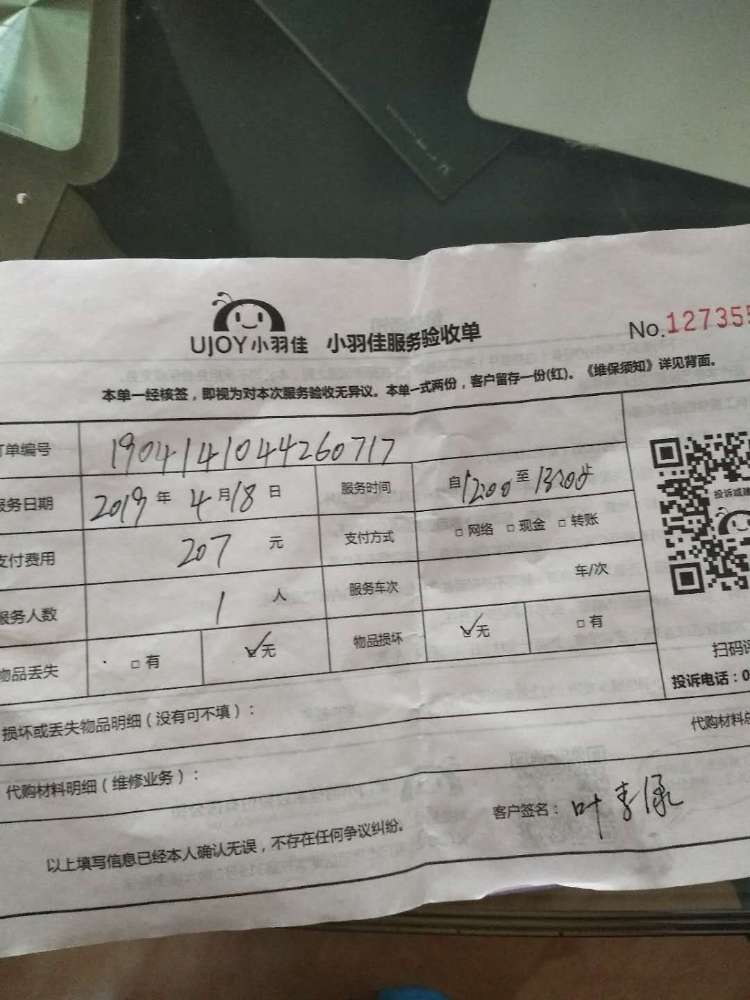 UJOY小羽佳 小羽佳服务验收单 No.127355
本单一经核签，即视为对本次服务验收无异议。本单一式两份，客户留存一份(红)。《维保须知》详见背面。
订单编号 19041410442607​17
服务日期 2019 年 4 月 18 日 服务时间 自 1200 至 1320 止
支付费用 207 元 支付方式 □ 网络 □ 现金 □ 转账
服务人数 1 人 服务车次 车/次
物品丢失 □ 有 ☑ 无 物品损坏 ☑ 无 □ 有
投诉或建
扫码
投诉电话：0
损坏或丢失物品明细（没有可不填）：
代购材料明细（维修业务）： 代购材料总
以上填写信息已经本人确认无误，不存在任何争议纠纷。 客户签名：叶